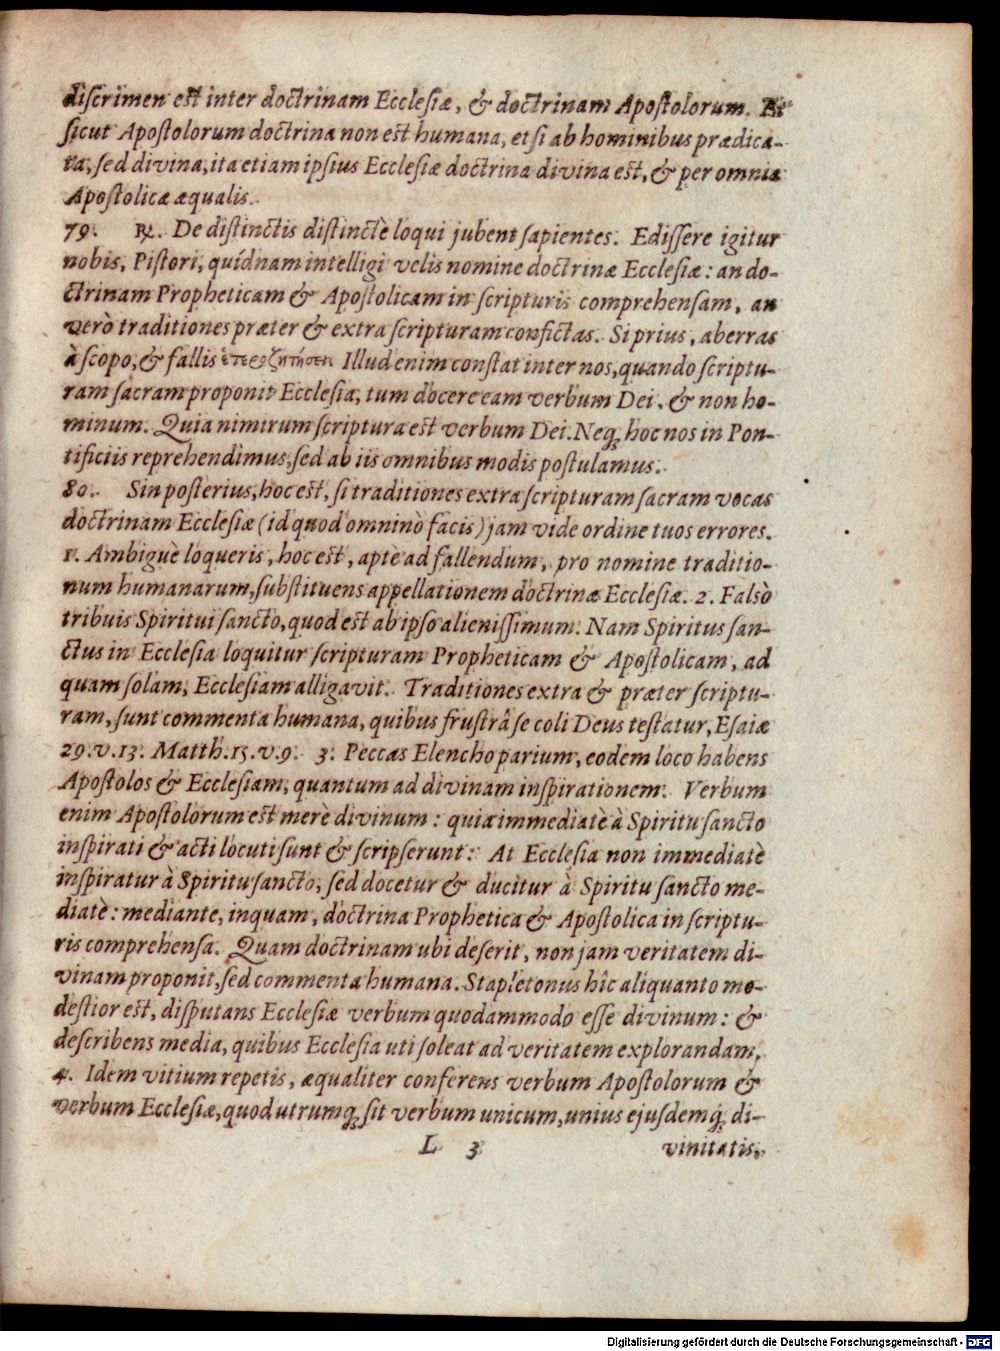 discrimen est inter doctrinam Ecclesiæ, & doctrinam Apostolorum. Et
sicut Apostolorum doctrina non est humana, etsi ab hominibus prædica-
ta, sed divina, ita etiam ipsius Ecclesiæ doctrina divina est, & per omnia
Apostolicæ æqualis.
79. ℞. De distinctis distinctè loqui jubent sapientes. Edissere igitur
nobis, Pistori, quídnam intelligi velis nomine doctrinæ Ecclesiæ: an do-
ctrinam Propheticam & Apostolicam in scripturis comprehensam, an
verò traditiones præter & extra scripturam confictas. Si prius, aberras
à scopo, & fallis ἑτεροζητήσει. Illud enim constat inter nos, quando scriptu-
ram sacram proponit Ecclesia, tum docere eam verbum Dei, & non ho-
minum. Quia nimirum scriptura est verbum Dei. Neq; hoc nos in Pon-
tificiis reprehendimus, sed ab iis omnibus modis postulamus.
80. Sin posterius, hoc est, si traditiones extra scripturam sacram vocas
doctrinam Ecclesiæ (id quod omninò facis) jam vide ordine tuos errores.
1. Ambiguè loqueris, hoc est, aptè ad fallendum, pro nomine traditio-
num humanarum, substituens appellationem doctrinæ Ecclesiæ. 2. Falsò
tribuis Spiritui sancto, quod est ab ipso alienissimum. Nam Spiritus san-
ctus in Ecclesia loquitur scripturam Propheticam & Apostolicam, ad
quam solam, Ecclesiam alligavit. Traditiones extra & præter scriptu-
ram, sunt commenta humana, quibus frustrâ se coli Deus testatur, Esaiæ
29. v. 13. Matth. 15. v. 9. 3. Peccas Elencho parium, eodem loco habens
Apostolos & Ecclesiam, quantum ad divinam inspirationem. Verbum
enim Apostolorum est merè divinum: quia immediatè à Spiritu sancto
inspirati & acti locuti sunt & scripserunt: At Ecclesia non immediatè
inspiratur à Spiritu sancto, sed docetur & ducitur à Spiritu sancto me-
diatè: mediante, inquam, doctrina Prophetica & Apostolica in scriptu-
ris comprehensa. Quam doctrinam ubi deserit, non jam veritatem di-
vinam proponit, sed commenta humana. Stapletonus hîc aliquanto mo-
destior est, disputans Ecclesiæ verbum quodammodo esse divinum: &
describens media, quibus Ecclesia uti soleat ad veritatem explorandam.
4. Idem vitium repetis, æqualiter conferens verbum Apostolorum &
verbum Ecclesiæ, quod utrumq; sit verbum unicum, unius ejusdemq; di-
L 3 vinitatis,
Digitalisierung gefördert durch die Deutsche Forschungsgemeinschaft - DFG